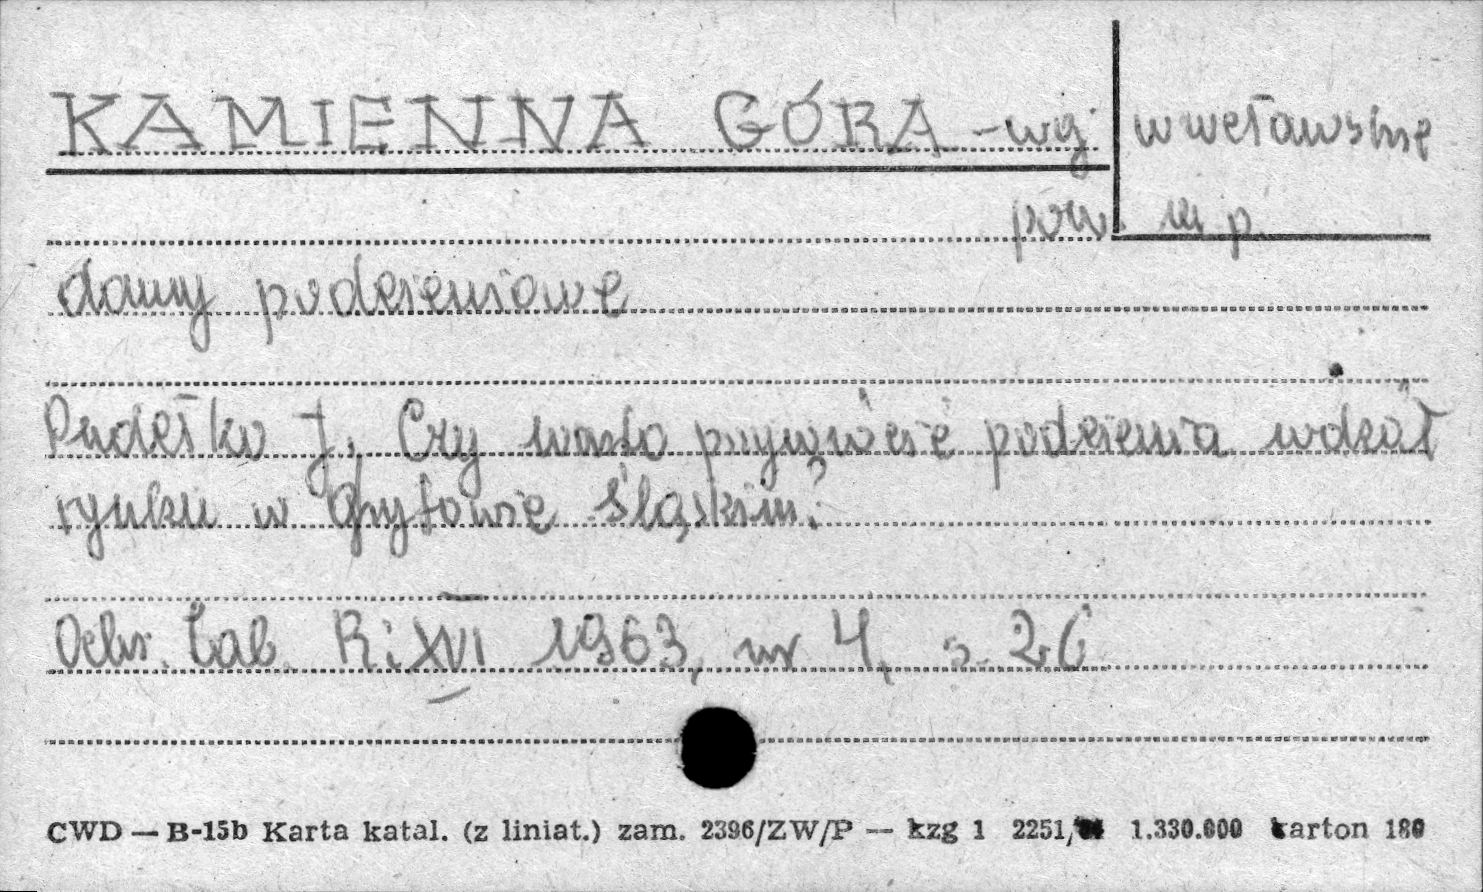 KAMIENNA GÓRA - wg. wrocławskie
pow. w m.
domy podcieniowe
Pudełko J. Czy warto przywrócić podcienia wśród
rynku w Gryfowie Śląskim?
Ochr. Zab. R: XVI 1963, nr 4, s. 26
CWD — B-15b Karta katal. (z liniat.) zam. 2396/ZW/P — kzg 1 2251/ 1.330.000 karton 180